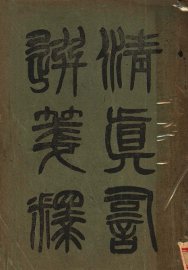 清眞詞
選箋釋